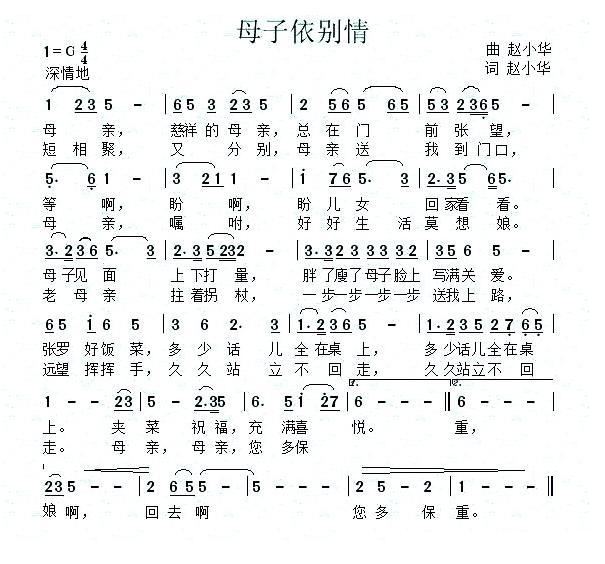 母子依别情
1=G 4/4
曲 赵小华
深情地
词 赵小华
1 23 5 - | 65 3 23 5 | 2 56 5 65 | 53 236 5 - |
母 亲， 慈祥的母亲，总在门 前张望，
短相聚， 又 分别，母亲送 我到门口，
5. 6 1 - | 3 221 1 - | i 76 5. 3 | 2.35 65. |
等 啊， 盼 啊， 盼儿女 回家看看。
母 亲， 嘱 咐， 好好生活莫想娘。
3.236 5. 3 | 2.35 232 - | 3.32 33 332 | 35 6 5 - |
母子见面 上下打量， 胖了瘦了母子脸上 写满关爱。
老母亲 拄着拐杖， 一步一步一步 送我上路，
65 i 6 5 | 3 6 2. 3 | 1.236 5 - | 1.235 2765 |
张罗好饭菜，多少话儿全在桌上， 多少话儿全在桌
远望挥挥手，久久站立不回走， 久久站立不回
1 - - 23 | 5 - 2.35 | 6. 5i 27 | 6 - - - || 6 - - - |
上。 夹菜祝福，充满喜 悦。 重，
走。 母亲，母亲，您多保
235 - - | 2 65 5 - | 5 - - - | 2 5 - 2 | 1 - - - ||
娘啊， 回去啊 您多保重。